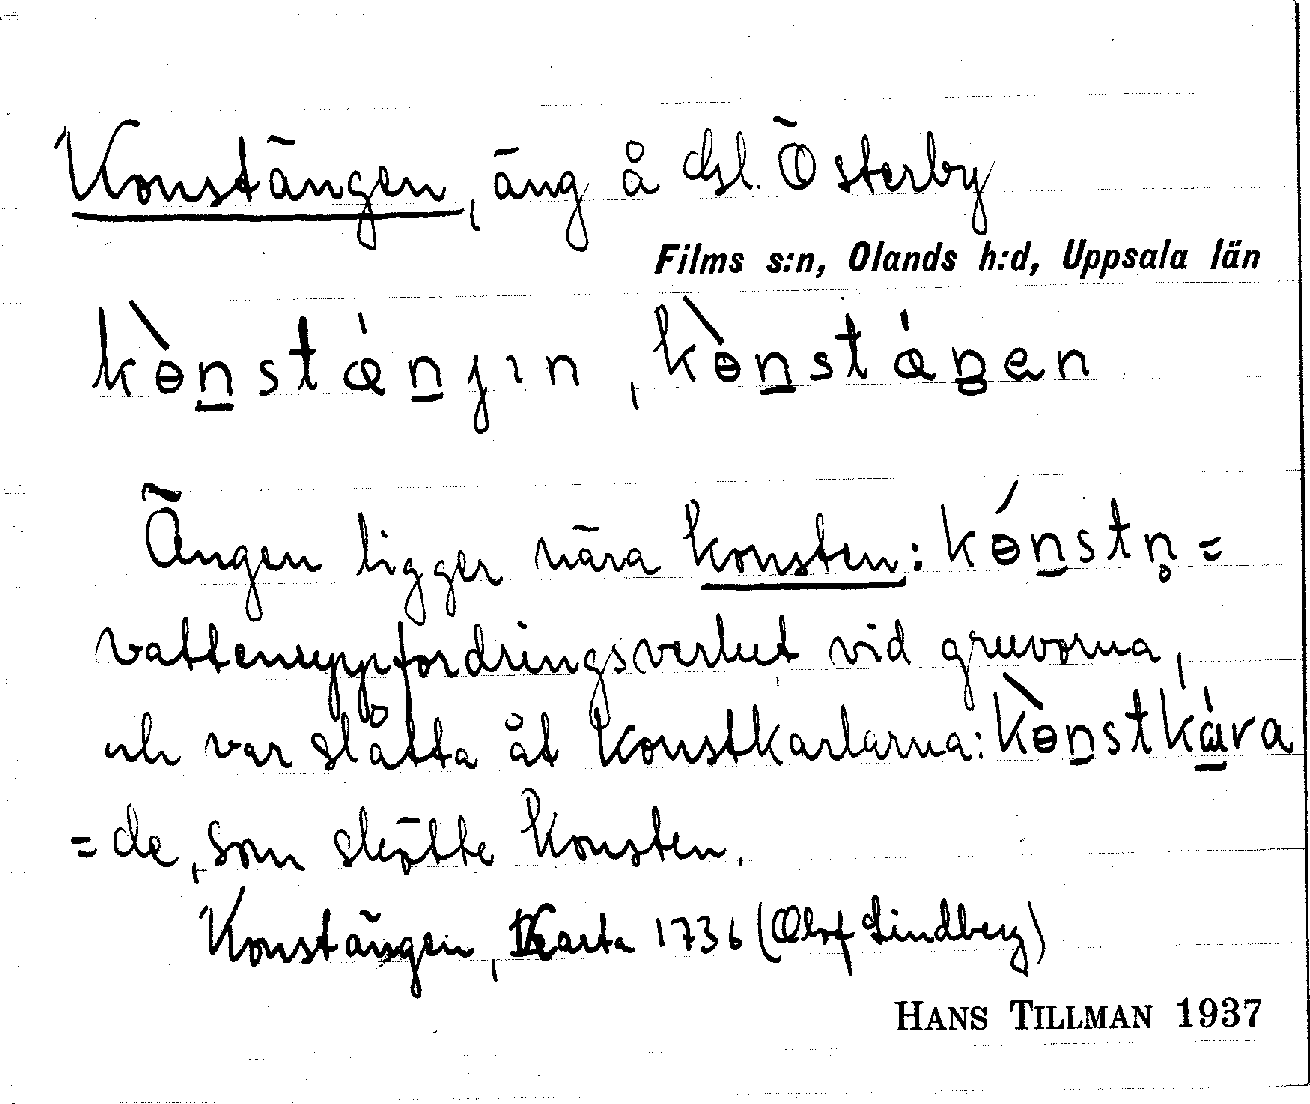 Konstängen, äng å Gsl. Österby
Films s:n, Olands h:d, Uppsala län
kɵ̀n̲stæ̀n̲jın, kɵ̀n̲stæ̀ŋen
Ängen ligger nära konsten: kɵ́n̲stn̥ =
vattenuppfordringsverket vid gruvorna,
och var slåtta åt konstkarlarna: kɵ̀n̲stkàra
= de, som skötte konsten.
Konstängen, Karta 1736 (Olof Lindberg)
HANS TILLMAN 1937